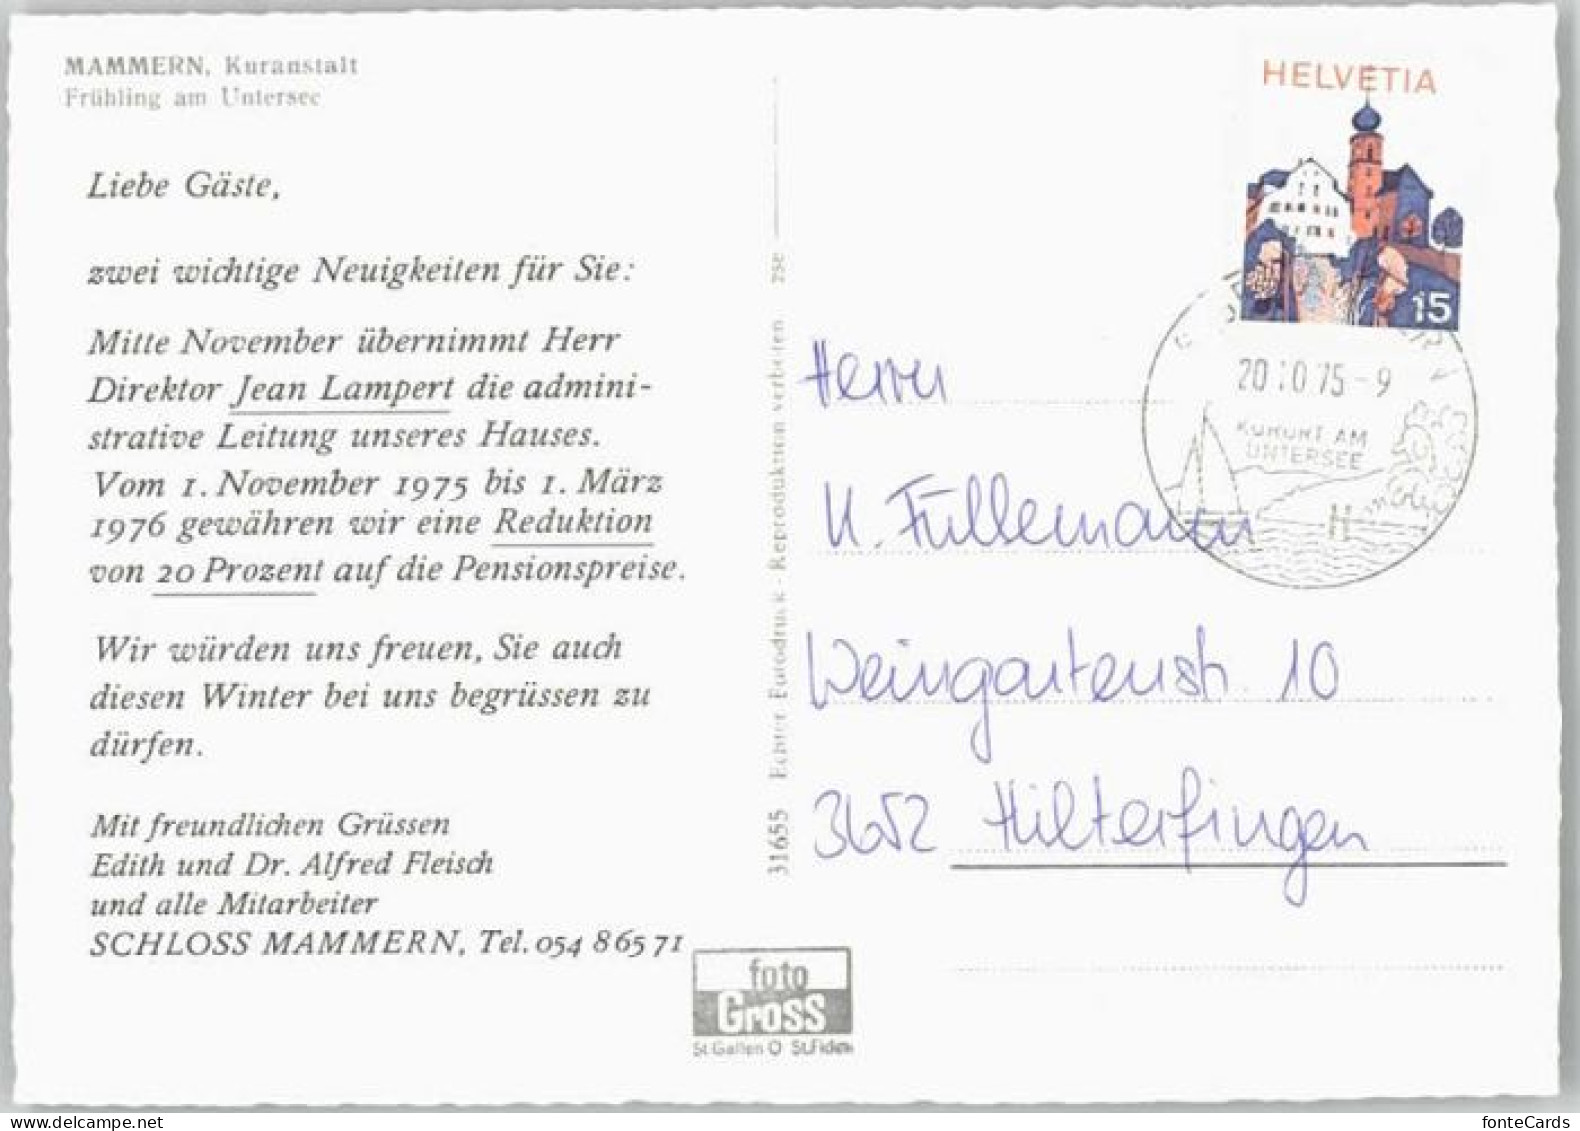 MAMMERN, Kuranstalt
Frühling am Untersee
Liebe Gäste,
zwei wichtige Neuigkeiten für Sie:
Mitte November übernimmt Herr
Direktor Jean Lampert die admini-
strative Leitung unseres Hauses.
Vom 1. November 1975 bis 1. März
1976 gewähren wir eine Reduktion
von 20 Prozent auf die Pensionspreise.
Wir würden uns freuen, Sie auch
diesen Winter bei uns begrüssen zu
dürfen.
Mit freundlichen Grüssen
Edith und Dr. Alfred Fleisch
und alle Mitarbeiter
SCHLOSS MAMMERN, Tel. 054 8 65 71
31655 Echter Fotodruck - Reproduktion verboten zse
foto
Gross
St. Gallen O St. Fiden
HELVETIA
15
20.10.75-9
KURORT AM
UNTERSEE
Herrn
K. Füllemann
Weingartenstr. 10
3652 Hilterfingen
fonteCards